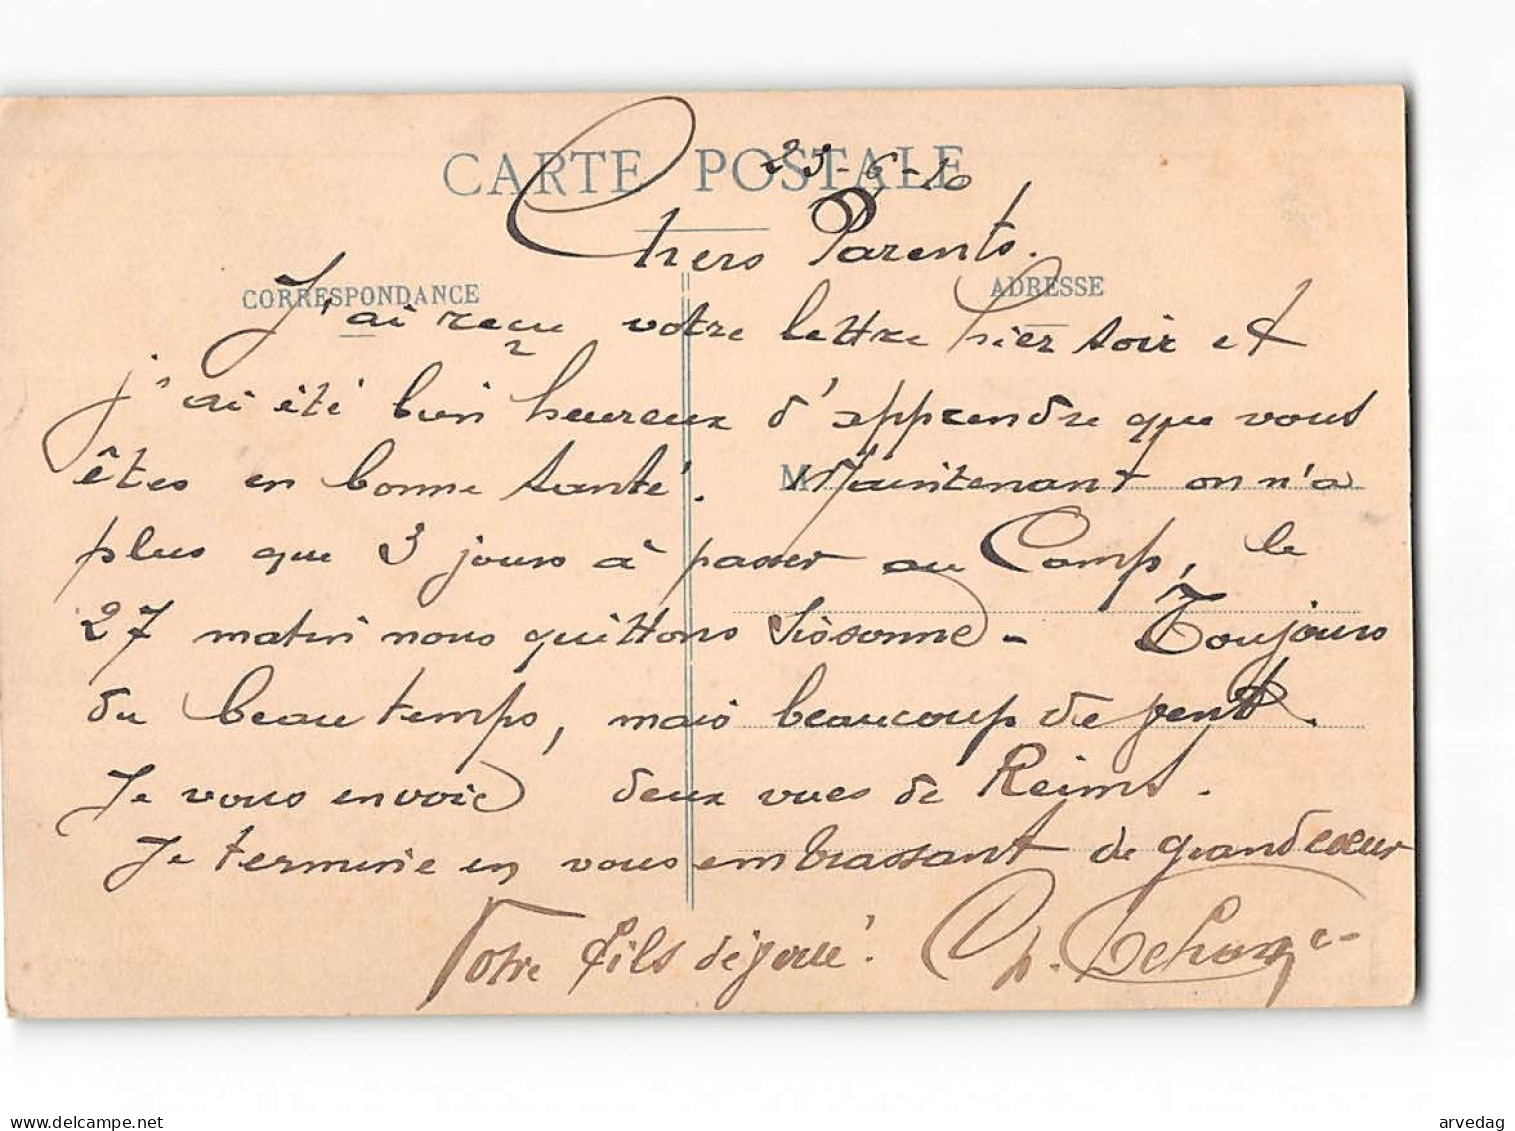 CARTE POSTALE
23-6-10
Chers Parents.
CORRESPONDANCE
ADRESSE
J'ai reçu votre lettre hier soir et
j'ai été bien heureux d'apprendre que vous
êtes en bonne santé. Maintenant on n'a
M
plus que 3 jours à passer au Camp, le
27 matin nous quittons Sissonne - Toujours
du beau temps, mais beaucoup de vent.
Je vous envoie deux vues de Reims.
Je termine en vous embrassant de grand cœur
Votre fils dévoué. Ch.
delcampe.net
arvedag